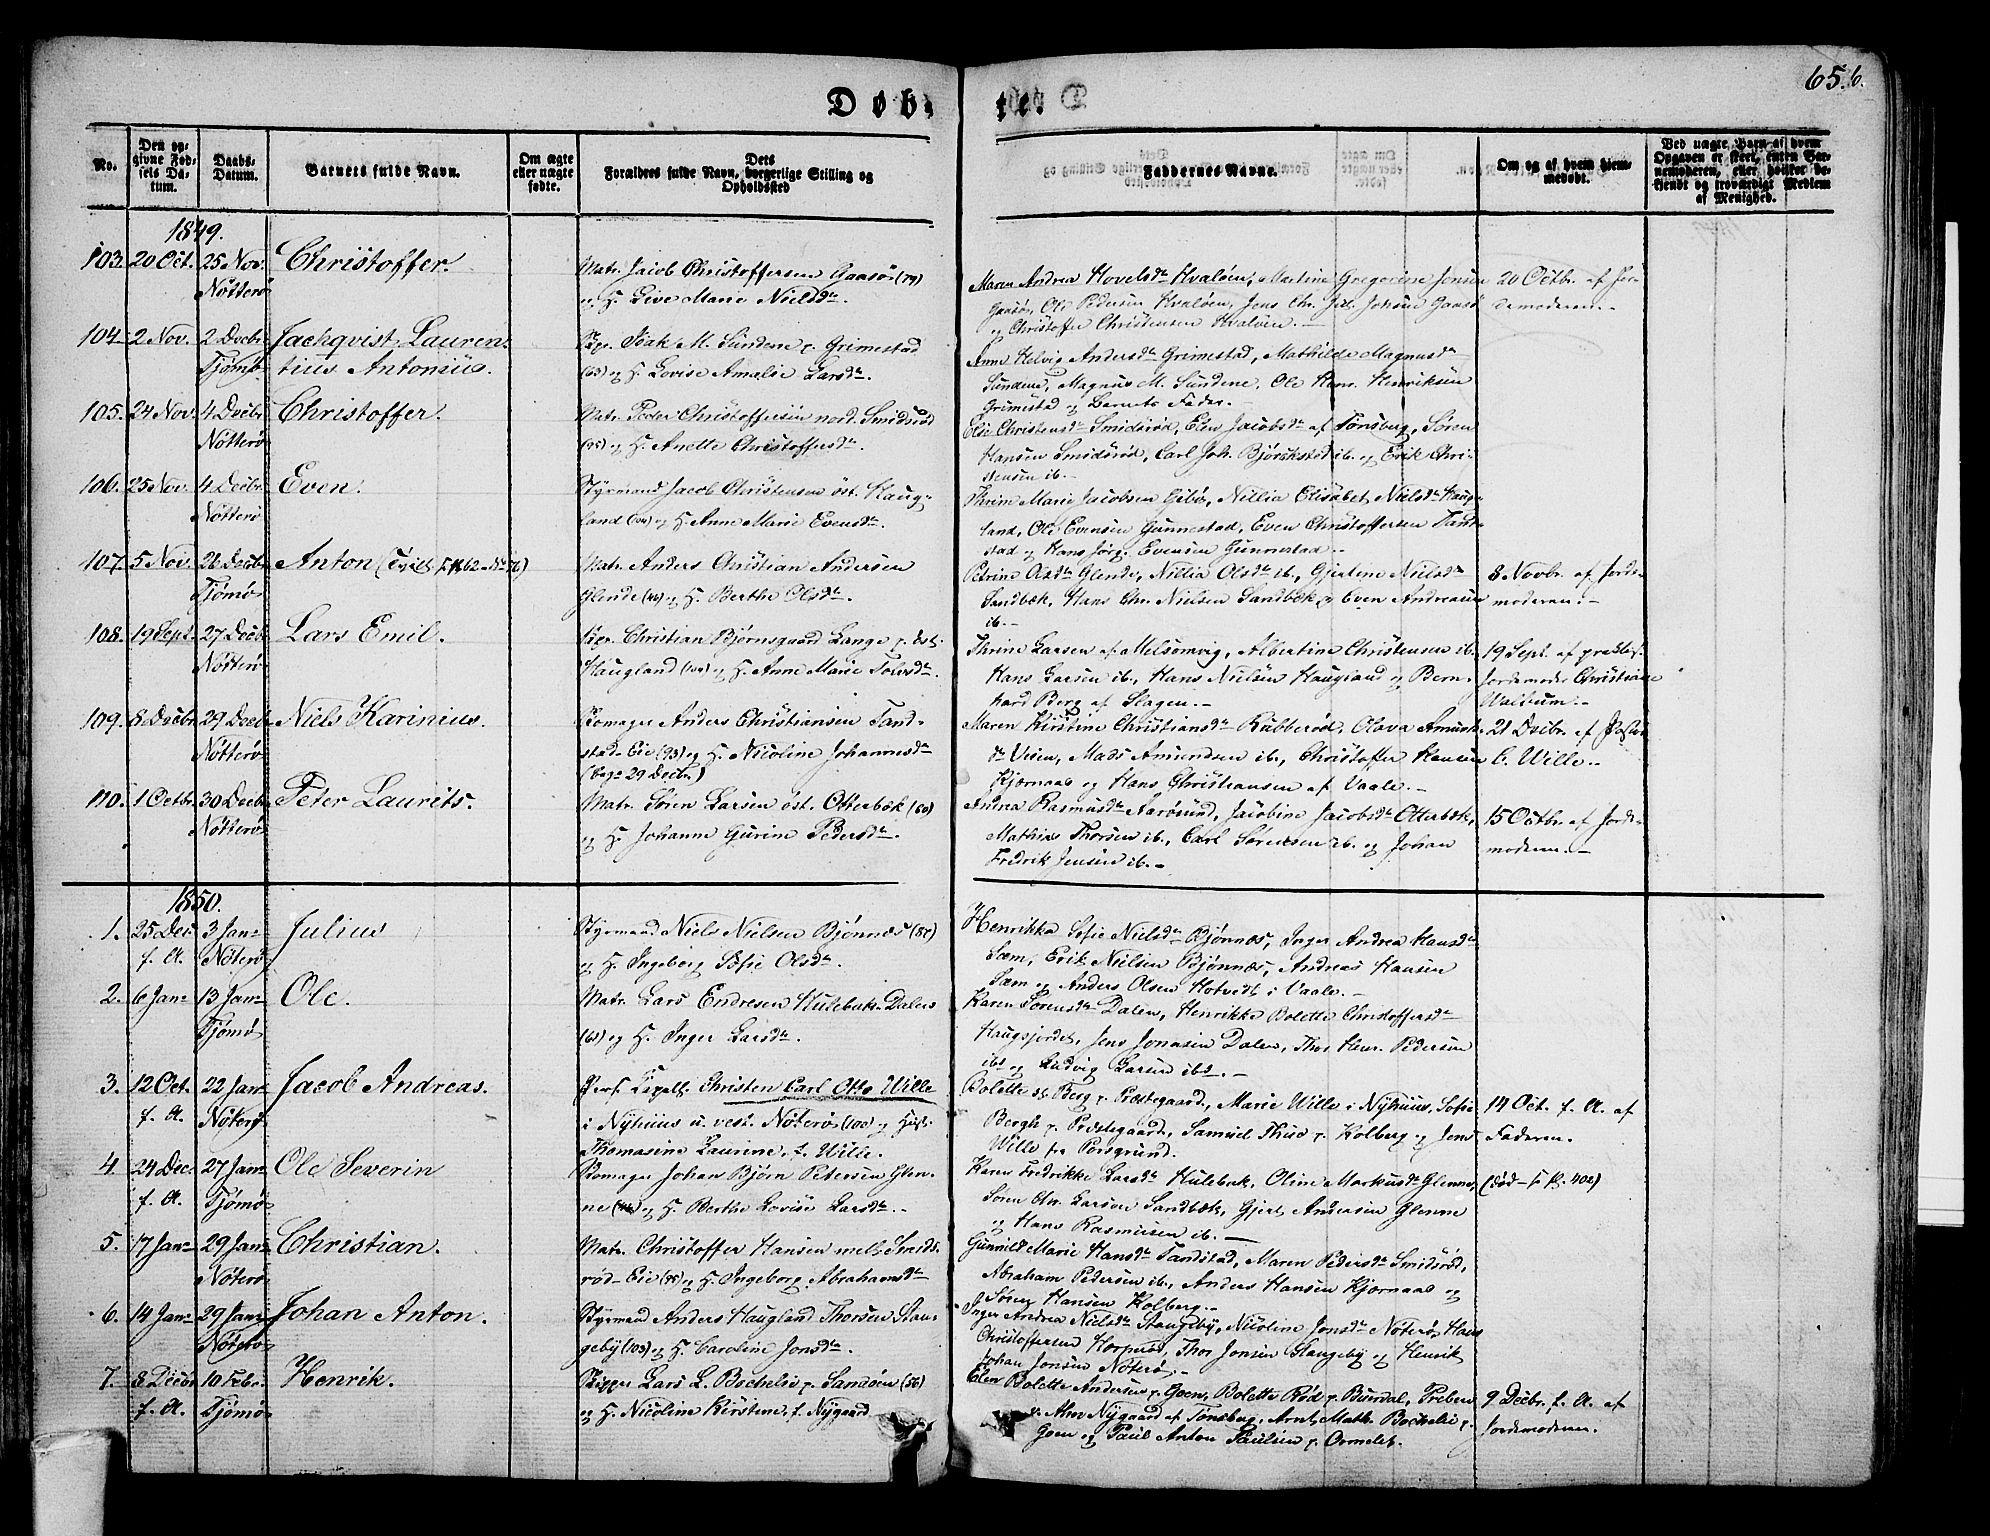 Døb. te.
65.b.
No.
Den opgivne Fødsels Datum.
Daabs-Datum.
Barnets fulde Navn.
Om ægte eller uægte fødte.
Dets Forældres fulde Navn, borgerlige Stilling og Opholdssted
Faddernes Navne.
Om og af hvem hjemmedøbt.
Ved uægte Barn af hvem Opgaven er skeet, enten Barnemoderen, eller hvilket bekjendt og troværdigt Medlem af Menighed.
1849.
103. 20 Oct. 25 Nov. Nötterö Christoffer.
Matr. Jacob Christoffersen Gaasö (79)
og H. Give Marie Nielsdtr.
Maren Andrea Hovelsdtr Hvalöen, Martine Gregorine Jensen
Gaasö, Ole Pedersen Hvalöen, Jens Chr. Johsen Gaasö
og Christoffer Christensen Hvalöen.
20 Octbr. af Jordemoderen.
104. 2 Nov. 2 Decbr. Tjömö Jachqvist Laurentius Antonius.
Skpr. Isak M. Sundene p. Grimestad
(63) og H. Lovise Amalie Larsdtr.
Anne Helvig Andersdtr Grimestad, Mathilde Magnusdtr
Sundene, Magnus M. Sundene, Ole Hans Henriksen
Grimestad og Barnets Fader.
105. 24 Nov. 4 Decbr. Nötterö Christoffer.
Matr. Peder Christoffersen nord. Smidsröd
(95) og H. Anette Christoffersdtr.
Else Christensdtr Smidsröd, Elen Jacobsdtr af Tönsberg, Sören
Hansen Smidsröd, Carl Joh. Björckstöd ib. og Erik Christensen ib.
106. 25 Nov. 4 Decbr. Nötterö Even.
Styrmand Jacob Christensen öst. Haugland
(104) og H. Anne Marie Evensdtr.
Thrine Marie Jacobsen Gibö, Nillia Elisabet Nielsdtr Haugland,
Ole Evensen Gunnestad, Even Christoffersen Tandstad
og Hans Jörg. Evensen Gunnestad.
107. 5 Nov. 26 Decbr. Tjömö Anton
Matr. Anders Christian Andersen
Glende og H. Berthe Olsdtr.
Petrine Olsdtr Glende, Nillia Olsdtr ib., Gjertine Nielsdtr
Sandbæk, Hans Chr. Nielsen Sandbæk og Even Andreasen
ib.
8 Novbr. af Jordemoderen.
108. 19 Sept. 27 Decbr. Nötterö Lars Emil.
Skpr. Christian Björnsgaard Lange p. öst.
Haugland (104) og H. Anne Marie Tolvsdtr.
Thrine Larsen af Melsomvig, Albertine Christensen ib.
Hans Larsen ib., Hans Nielsen Haugland og Bernhard
Berg af Slagen.
19 Sept. af Jordemoder Christiane Walbum.
109. 8 Decbr. 29 Decbr. Nötterö Niels Karinius.
Skomager Anders Christiansen Tandstad
Eie (93) og H. Nicoline Johannesdtr
Maren Kirstine Christiansdtr Rubberöd, Olava Amundsdtr
Vesen, Mads Amundsen ib., Christoffer Hansen
Kjærnaas og Hans Christiansen af Vaale.
21 Decbr. af Pastor C. Wille.
110. 1 Octbr. 30 Decbr. Nötterö Peter Laurits.
Matr. Sören Larsen öst. Otterbæk (60)
og H. Johanne Gurine Pedersdtr.
Andrea Rasmusdtr Aarösund, Jacobine Jacobsdtr Otterbæk,
Mathias Thorsen ib., Carl Sörensen ib. og Johan
Fredrik Jensen ib.
15 Octbr. af Jordemoderen.
1850.
1. 25 Dec. f. A. 3 Jan. Nöterö Julius
Styrmand Niels Nielsen Bjönnæs (87)
og H. Ingeborg Sofie Olsdtr.
Henrikka Sofie Nielsdtr Bjönnæs, Inger Andrea Hansdtr
Sæm, Erik Nielsen Bjönnæs, Andreas Hansen
Sæm og Anders Olsen Hotvedt i Vaale.
2. 6 Jan. 13 Jan. Tjömö Ole.
Matr. Lars Endresen Hulebak Dalen
(61) og H. Inger Larsdtr.
Karen Sörensdtr Dalen, Henrikke Bolette Christoffersdtr
Haugsjordet, Jens Jonasen Dalen, Thor Henr. Pedersen
ibs og Ludvig Larsen ibs.
3. 12 Oct. f. A. 22 Jan. Nöterö Jacob Andreas.
Pers. Kapell. Christen Carl Otto Wille
i Nyhuus u. vest. Nöterö (100) og Hust.
Thomasine Laurine f. Wille.
Bolette St. Berg p. Præstegaard, Marie Wille i Nyhuus, Sofie
Bergh p. Præstegaard, Samuel Thue p. Kolberg og Jens
Wille fra Porsgrund.
14 Oct. f. A. af Faderen.
4. 24 Dec. f. A. 27 Jan. Tjömö Ole Severin
Skomager Johan Björn Petersen Glenne
og H. Berthe Lovise Larsdtr.
Karen Fredrikke Larsdtr Hulebak, Oline Markusdtr Glenne,
Sören Chr. Larsen Sandbæk, Gjert Andersen Glenne
og Hans Rasmusen ib.
(död F. p. 402)
5. 17 Jan. 29 Jan. Nöterö Christian.
Matr. Christoffer Hansen mels Smidsröd
Eie (95) og H. Ingeborg Abrahamsdtr
Gunnild Marie Hansdtr Tandstad, Maren Pedersdtr Smidsröd,
Abraham Pedersen ib., Anders Hansen Kjærnaas og
Sören Hansen Kolberg.
6. 14 Jan. 29 Jan. Nöterö Johan Anton.
Styrmand Anders Haugland Thorsen Skaugeby
(103) og H. Caroline Jonsdtr
Inger Andrea Nielsdtr Skaugeby, Nicoline Jonsdtr Nöterö, Hans
Christoffersen Horperöd, Thor Jonsen Skaugeby og Henrik
Johan Jonsen Nöterö.
7. 8 Decbr. f. A. 10 Febr. Tjömö Henrik.
Skipper Lars L. Bochelie p. Sandöen (56)
og H. Nicoline Kirstine f. Nygaard
Elen Bolette Andersen p. Goen, Bolette Röd p. Buerdal, Preben
Nygaard af Tönsberg, Arnt Math. Bochelie p.
Goen og Paul Anton Paulsen p. Ormelet.
9 Decbr. f. A. af Jordemoderen.